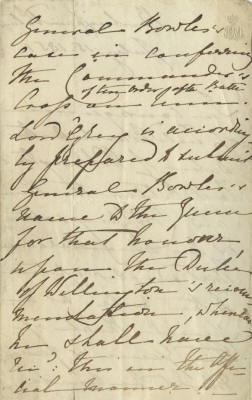 General Bowles's
case in conferring
the Commander's
of the order of the Bath
Cross on him
Lord Grey is according
ly prepared to submit
General Bowles's
name to the Queen
for that honour
upon the Duke
of Wellington's recom
mendation, when
he shall have
this in the offi
cial manner